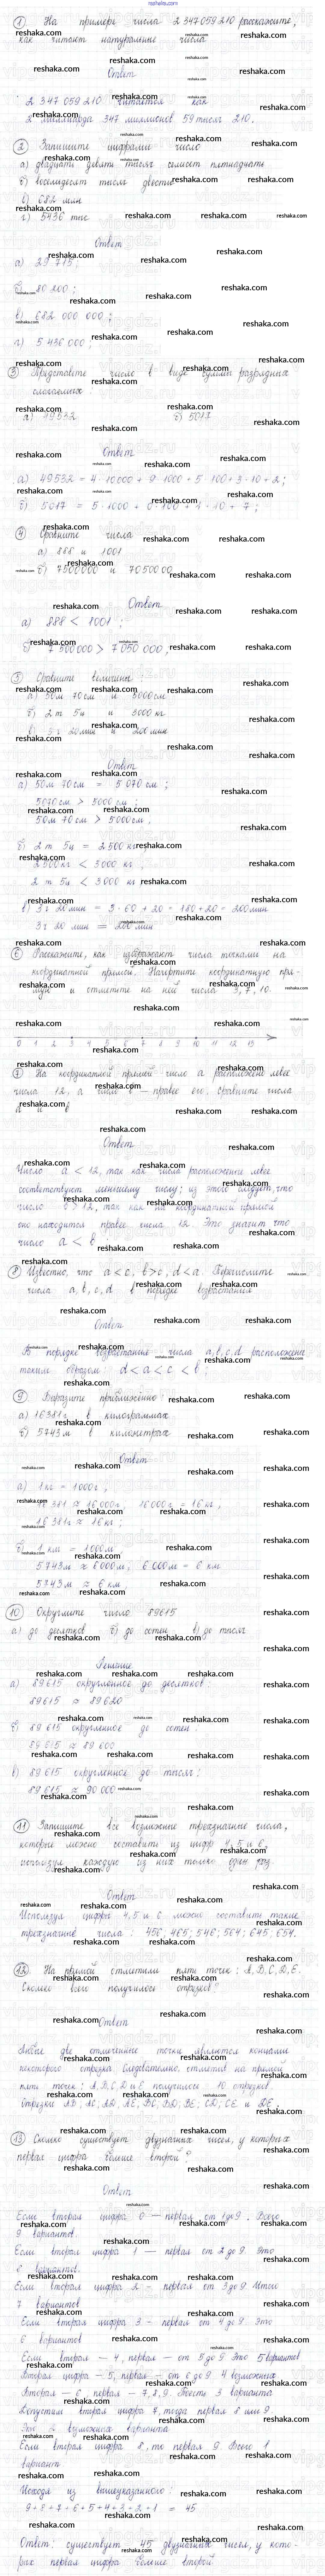 reshaka.com
① На примере числа 2 347 059 210 расскажите,
как читают натуральные числа
Ответ
2 347 059 210 читается как
2 миллиарда 347 миллионов 59 тысяч 210.
② Запишите цифрами число
а) двадцати девяти тысяч семисот пятнадцати
б) восемьдесят тысяч двести
в) 682 млн
г) 5436 тыс
Ответ
а) 29 715;
б) 80 200;
в) 682 000 000;
г) 5 436 000;
③ Представьте число в виде суммы разрядных
слагаемых
а) 49532 б) 5017
Ответ
а) 49532 = 4·10000 + 9·1000 + 5·100 + 3·10 + 2;
б) 5017 = 5·1000 + 0·100 + 1·10 + 7;
④ Сравните числа
а) 888 и 1001
б) 7500000 и 7050000
Ответ
а) 888 < 1001;
б) 7 500 000 > 7 050 000;
⑤ Сравните величины
а) 50м 70см и 5000см
б) 2т 5ц и 3000кг
в) 3ч 20мин и 200мин
Ответ
а) 50м 70см = 5 070см;
5070см > 5000см;
50м 70см > 5000см;
б) 2т 5ц = 2500кг
2500кг < 3000кг
2т 5ц < 3000кг
в) 3ч 20мин = 3·60 + 20 = 180 + 20 = 200мин
3ч 20мин = 200мин
⑥ Расскажите, как изображают числа точками на
координатной прямой. Начертите координатную пря-
мую и отметьте на ней числа 3, 7, 10.
0 1 2 3 4 5 6 7 8 9 10 11 12 13
⑦ На координатной прямой число а расположено левее
числа 12, а число в — правее его. Сравните числа
а и в
Ответ
Число а < 12, так как числа расположенные левее
соответствуют меньшему числу; из этого следует, что
число в > 12, так как на координатной прямой
оно находится правее числа 12. Это значит что
число а < в
⑧ Известно, что а < с, в > с, d < а. Перечислите
числа а, в, с, d в порядке возрастания
Ответ
В порядке возрастания числа а, в, с, d расположены
таким образом: d < а < с < в;
⑨ Выразите приближённо:
а) 16381г в килограммах
б) 5743м в километрах
Ответ
а) 1кг = 1000г;
16 381 ≈ 16 000г; 16 000г = 16кг;
16 381г ≈ 16кг;
б) 1км = 1000м
5743м ≈ 6000м; 6 000м = 6 км
5743м ≈ 6 км
⑩ Округлите число 89615
а) до десятков б) до сотен в) до тысяч
Решение
а) 89615 округленное до десятков:
89615 ≈ 89620
б) 89 615 округленное до сотен
89 615 ≈ 89 600
в) 89 615 округленное до тысяч:
89 615 ≈ 90 000
⑪ Запишите все возможные трёхзначные числа,
которые можно составить из цифр 4, 5 и 6,
используя каждую из них только один раз.
Ответ
Используя цифры 4, 5 и 6 можно составить такие
трёхзначные числа: 456; 465; 546; 564; 645; 654.
⑫ На прямой отметили пять точек: A, B, C, D, E.
Сколько всего получилось отрезков?
Ответ
Любые две отмеченные точки являются концами
некоторого отрезка. Следовательно, отметив на прямой
пять точек: A, B, C, D и E получилось 10 отрезков
Отрезки AB, AC, AD, AE, BC, BD, BE, CD, CE и DE.
⑬ Сколько существует двузначных чисел, у которых
первая цифра больше второй?
Ответ
Если вторая цифра 0 — первая от 1 до 9. Всего
9 вариантов.
Если вторая цифра 1 — первая от 2 до 9. Это
8 вариантов.
Если вторая цифра 2 — первая от 3 до 9. Итого
7 вариантов
Если вторая цифра 3 - первая от 4 до 9. Это
6 вариантов
Если вторая — 4, первая — от 5 до 9. Это 5 вариантов
Вторая цифра — 5, первая — от 6 до 9. 4 возможных
Вторая — 6, первая — 7, 8, 9. Есть 3 варианта
Допустим вторая цифра 7, тогда первая 8 или 9
Это 2 возможных варианта
Если вторая цифра 8, то первая 9. Всего 1
вариант
Исходя из вышеуказанного:
9 + 8 + 7 + 6 + 5 + 4 + 3 + 2 + 1 = 45
Ответ: существует 45 двузначных чисел, у кото-
рых первая цифра больше второй.